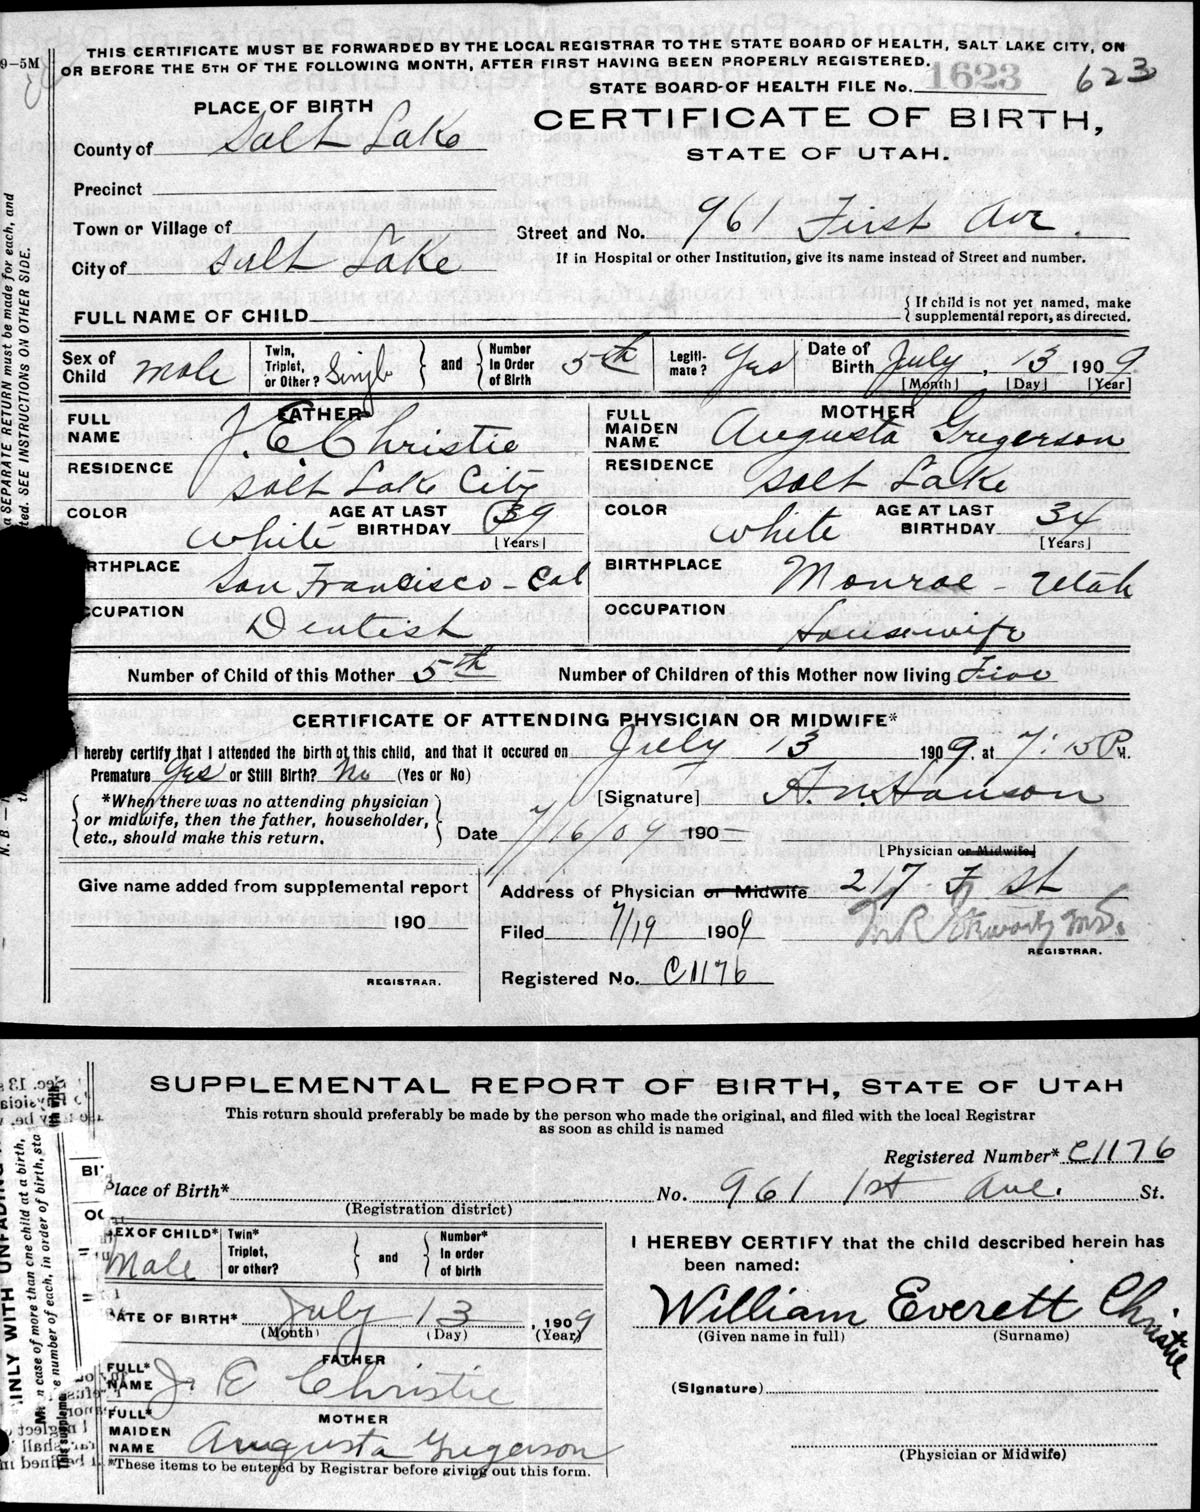 THIS CERTIFICATE MUST BE FORWARDED BY THE LOCAL REGISTRAR TO THE STATE BOARD OF HEALTH, SALT LAKE CITY, ON
OR BEFORE THE 5TH OF THE FOLLOWING MONTH, AFTER FIRST HAVING BEEN PROPERLY REGISTERED.
9-5M
STATE BOARD OF HEALTH FILE No. 1623 623
PLACE OF BIRTH
CERTIFICATE OF BIRTH,
STATE OF UTAH.
County of Salt Lake
Precinct
Town or Village of
Street and No. 961 First Ave.
City of Salt Lake
If in Hospital or other Institution, give its name instead of Street and number.
FULL NAME OF CHILD
{ If child is not yet named, make supplemental report, as directed.
Sex of Child Male
Twin, Triplet, or Other? Single } and { Number In Order of Birth 5th
Legitimate? Yes
Date of Birth July, 13 1909
[Month] [Day] [Year]
FATHER
FULL NAME J. E. Christie
MOTHER
FULL MAIDEN NAME Augusta Gregerson
RESIDENCE Salt Lake City
RESIDENCE Salt Lake
COLOR white AGE AT LAST BIRTHDAY 39 [Years]
COLOR white AGE AT LAST BIRTHDAY 34 [Years]
RTHPLACE San Francisco - Cal
BIRTHPLACE Monroe - Utah
CCUPATION Dentist
OCCUPATION Housewife
Number of Child of this Mother 5th Number of Children of this Mother now living Five
CERTIFICATE OF ATTENDING PHYSICIAN OR MIDWIFE*
I hereby certify that I attended the birth of this child, and that it occured on July 13 1909. at 7:15 P M.
Premature Yes or Still Birth? No (Yes or No)
[Signature] A. N. Hanson
{ *When there was no attending physician or midwife, then the father, householder, etc., should make this return. }
Date 7/16/09 190
[Physician or Midwife]
Give name added from supplemental report
Address of Physician or Midwife 217 F St
190
Filed 7/19 1909
REGISTRAR.
REGISTRAR.
Registered No. C1176
a SEPARATE RETURN must be made for each, and
ted. SEE INSTRUCTIONS ON OTHER SIDE.
N. B. —
SUPPLEMENTAL REPORT OF BIRTH, STATE OF UTAH
This return should preferably be made by the person who made the original, and filed with the local Registrar
as soon as child is named
Registered Number* C1176
Place of Birth* No. 961 1st Ave. St.
(Registration district)
SEX OF CHILD* Male
Twin* Triplet, or other? } and { Number* In order of birth
I HEREBY CERTIFY that the child described herein has
been named:
William Everett Christie
(Given name in full) (Surname)
DATE OF BIRTH* July 13, 1909
(Month) (Day) (Year)
FATHER
FULL* NAME J. E Christie
(Signature)
MOTHER
FULL* MAIDEN NAME Augusta Gregerson
(Physician or Midwife)
*These items to be entered by Registrar before giving out this form.
INLY WITH UNFADING
n case of more than one child at a birth,
e number of each, in order of birth, sta